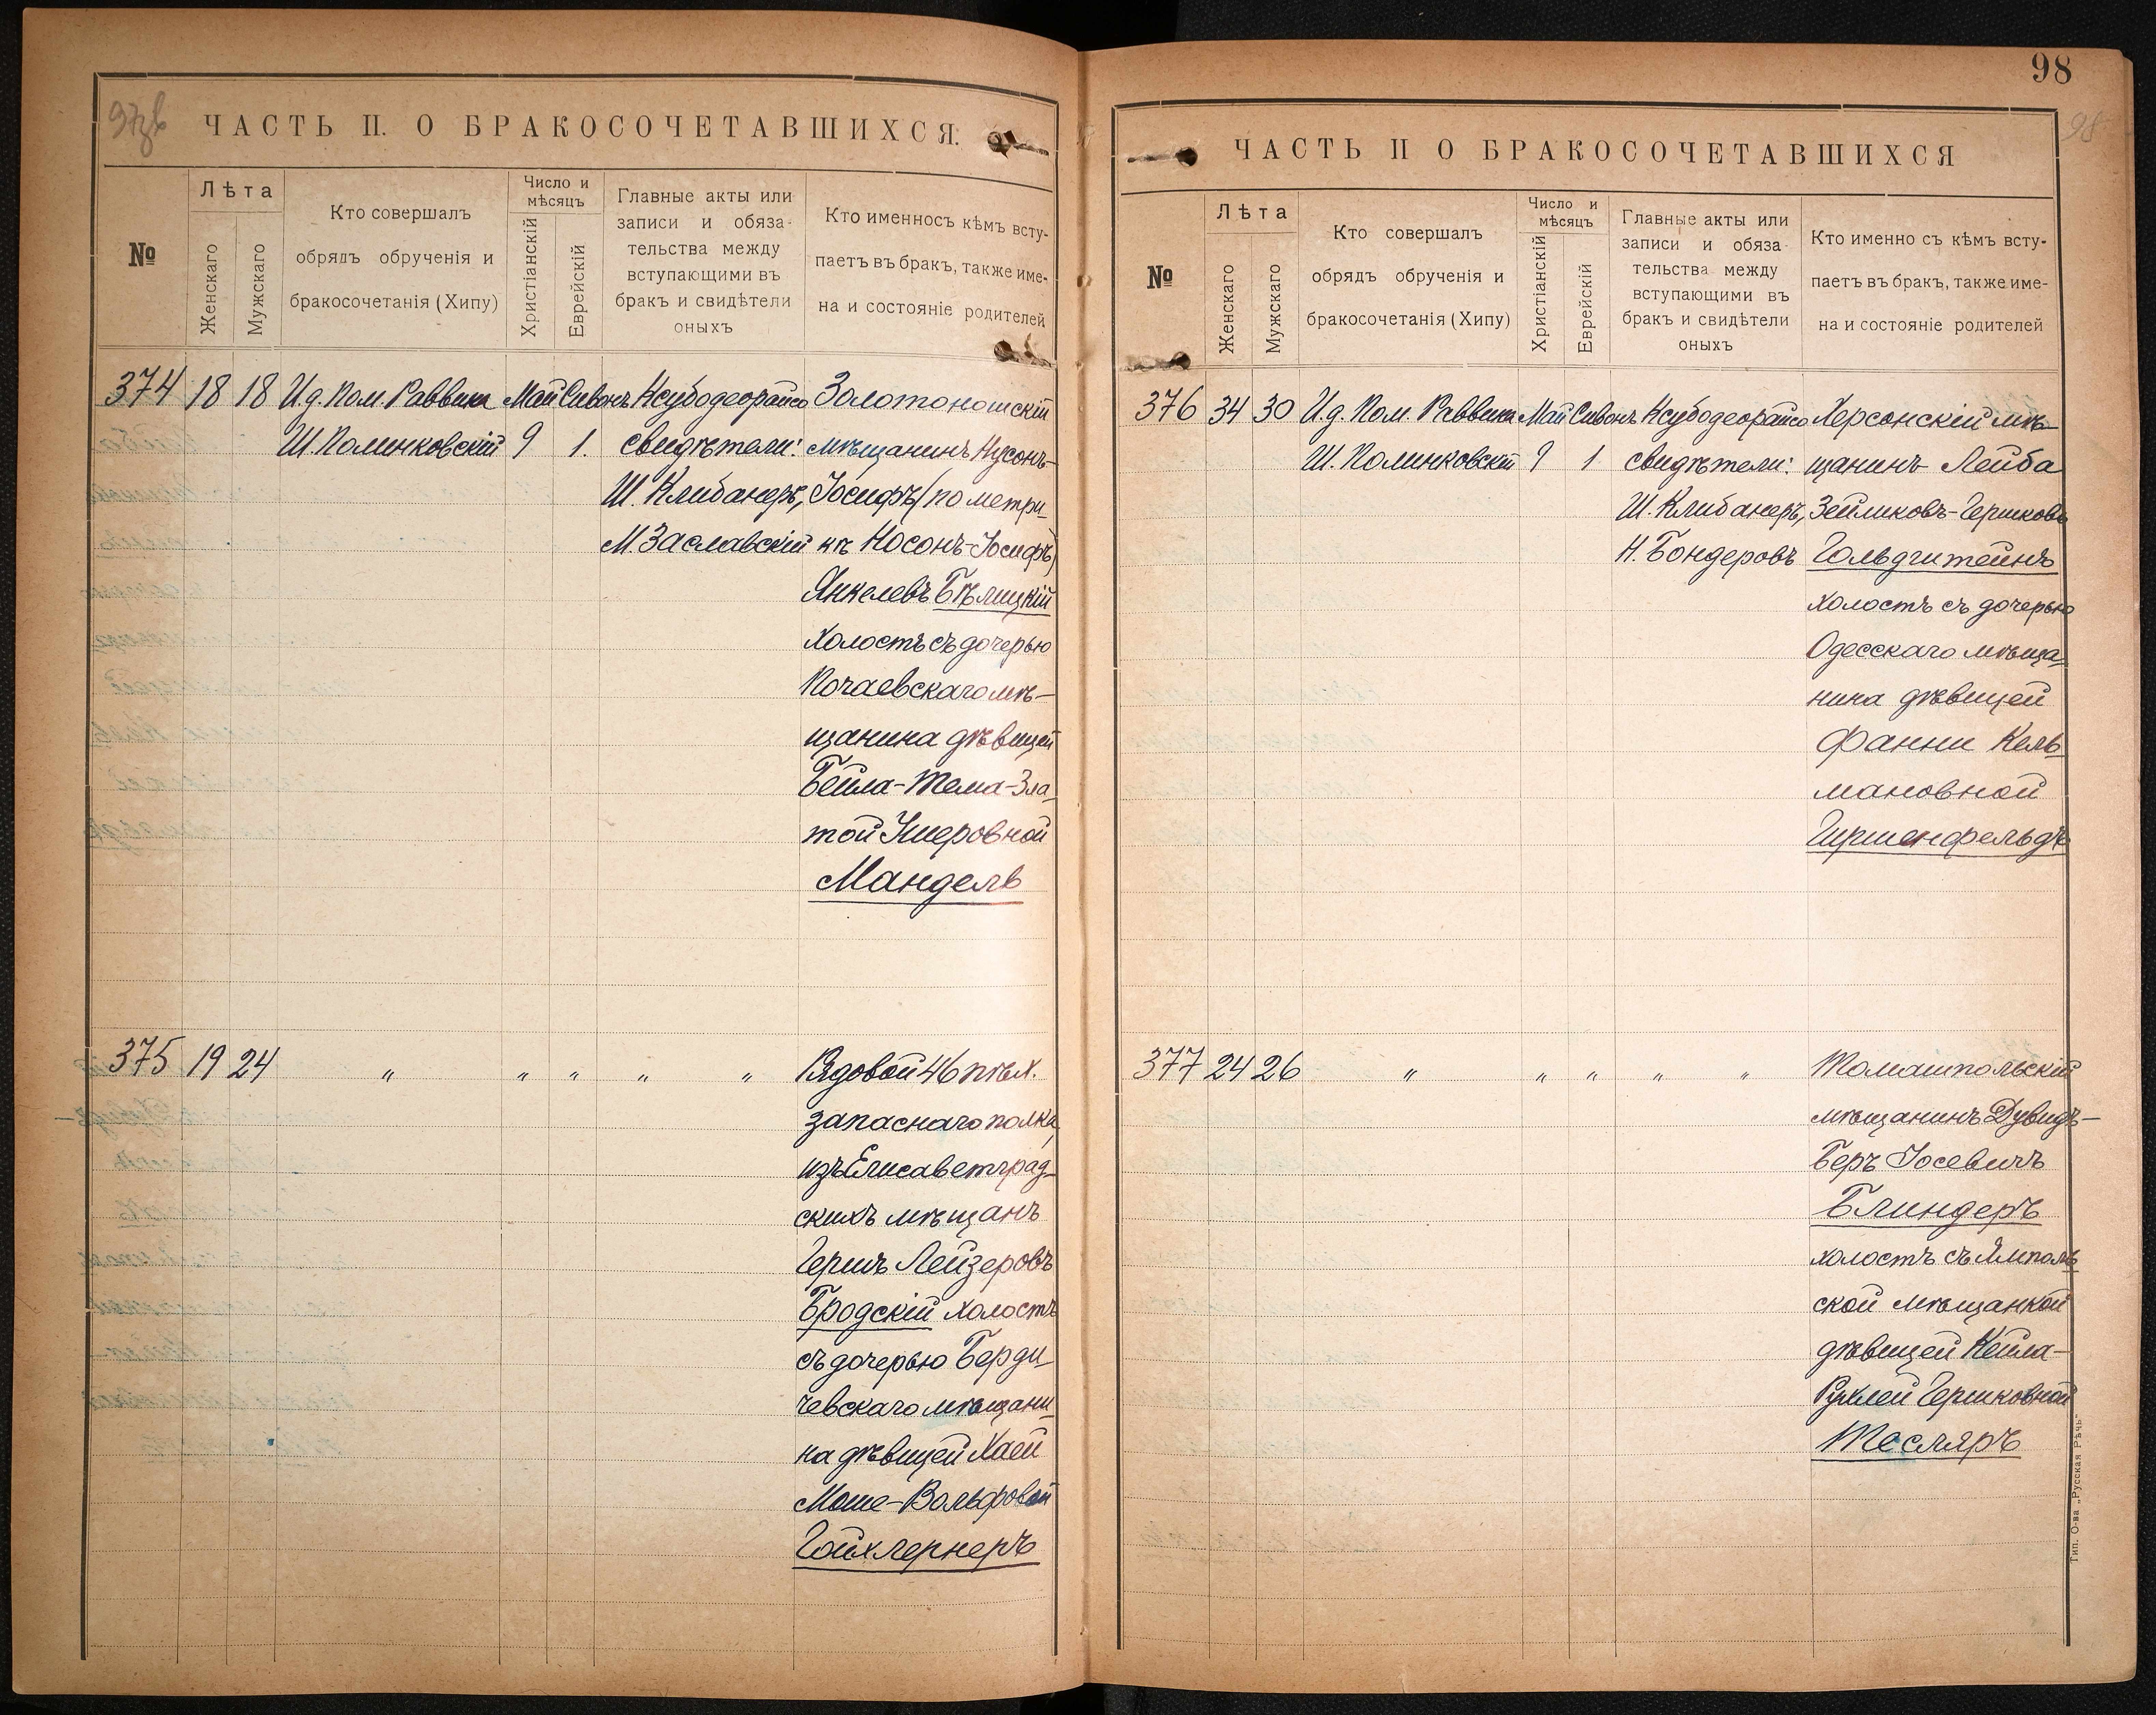 97зв
ЧАСТЬ II. О БРАКОСОЧЕТАВШИХСЯ.
№
Лѣта
Женскаго
Мужскаго
Кто совершалъ
обрядъ обрученія и
бракосочетанія (Хипу)
Число и
мѣсяцъ
Христіанскій
Еврейскій
Главные акты или
записи и обяза-
тельства между
вступающими въ
бракъ и свидѣтели
оныхъ
Кто именносъ кѣмъ всту-
паетъ въ бракъ, также име-
на и состояніе родителей
374 18 18 И.д. Пом. Раввина Май Сивонъ Ксубодеорайсо Золотоношскій
Ш. Полинковскій 9 1. свидѣтели: мѣщанинъ Нусонъ-
Ш. Клибанеръ, Іосифъ (по метри-
М. Заславскій кѣ Носонъ-Іосифъ)
Янкелевъ Бѣлицкій
холостъ съ дочерью
Почаевскаго мѣ-
щанина дѣвицей
Бейла-Тема-Зла-
той Умеровной
Мандель
375 19 24 " " " " " Рядовой 46 пѣх.
запаснаго полка,
изъ Елисаветград-
скихъ мѣщанъ
Гершъ Лейзеровъ
Бродскій холостъ
съ дочерью Берди-
чевскаго мѣщани-
на дѣвицей Хаей
Моше-Вольфовой
Гойхлернеръ
98
98
ЧАСТЬ II О БРАКОСОЧЕТАВШИХСЯ
№
Лѣта
Женскаго
Мужскаго
Кто совершалъ
обрядъ обрученія и
бракосочетанія (Хипу)
Число и
мѣсяцъ
Христіанскій
Еврейскій
Главные акты или
записи и обяза-
тельства между
вступающими въ
бракъ и свидѣтели
оныхъ
Кто именно съ кѣмъ всту-
паетъ въ бракъ, также име-
на и состояніе родителей
376 34 30 И.д. Пом. Раввина Май Сивонъ Ксубодеорайсо Херсонскій мѣ-
Ш. Полинковскій 9 1 свидѣтели: щанинъ Лейба
Ш. Клибанеръ, Зейликовъ-Гершковъ
Н. Бондеровъ Гольдштейнъ
холостъ съ дочерью
Одесскаго мѣща-
нина дѣвицей
Фанни Кель-
мановной
Гиршенфельдъ
377 24 26 " " " " " Томашпольскій
мѣщанинъ Дувидъ-
Беръ Іосевичъ
Блиндеръ
холостъ съ Ямполь-
ской мѣщанкой
дѣвицей Кейла-
Рухлей Гершковной
Тесляръ
Тип. О-ва „Русская Рѣчь"